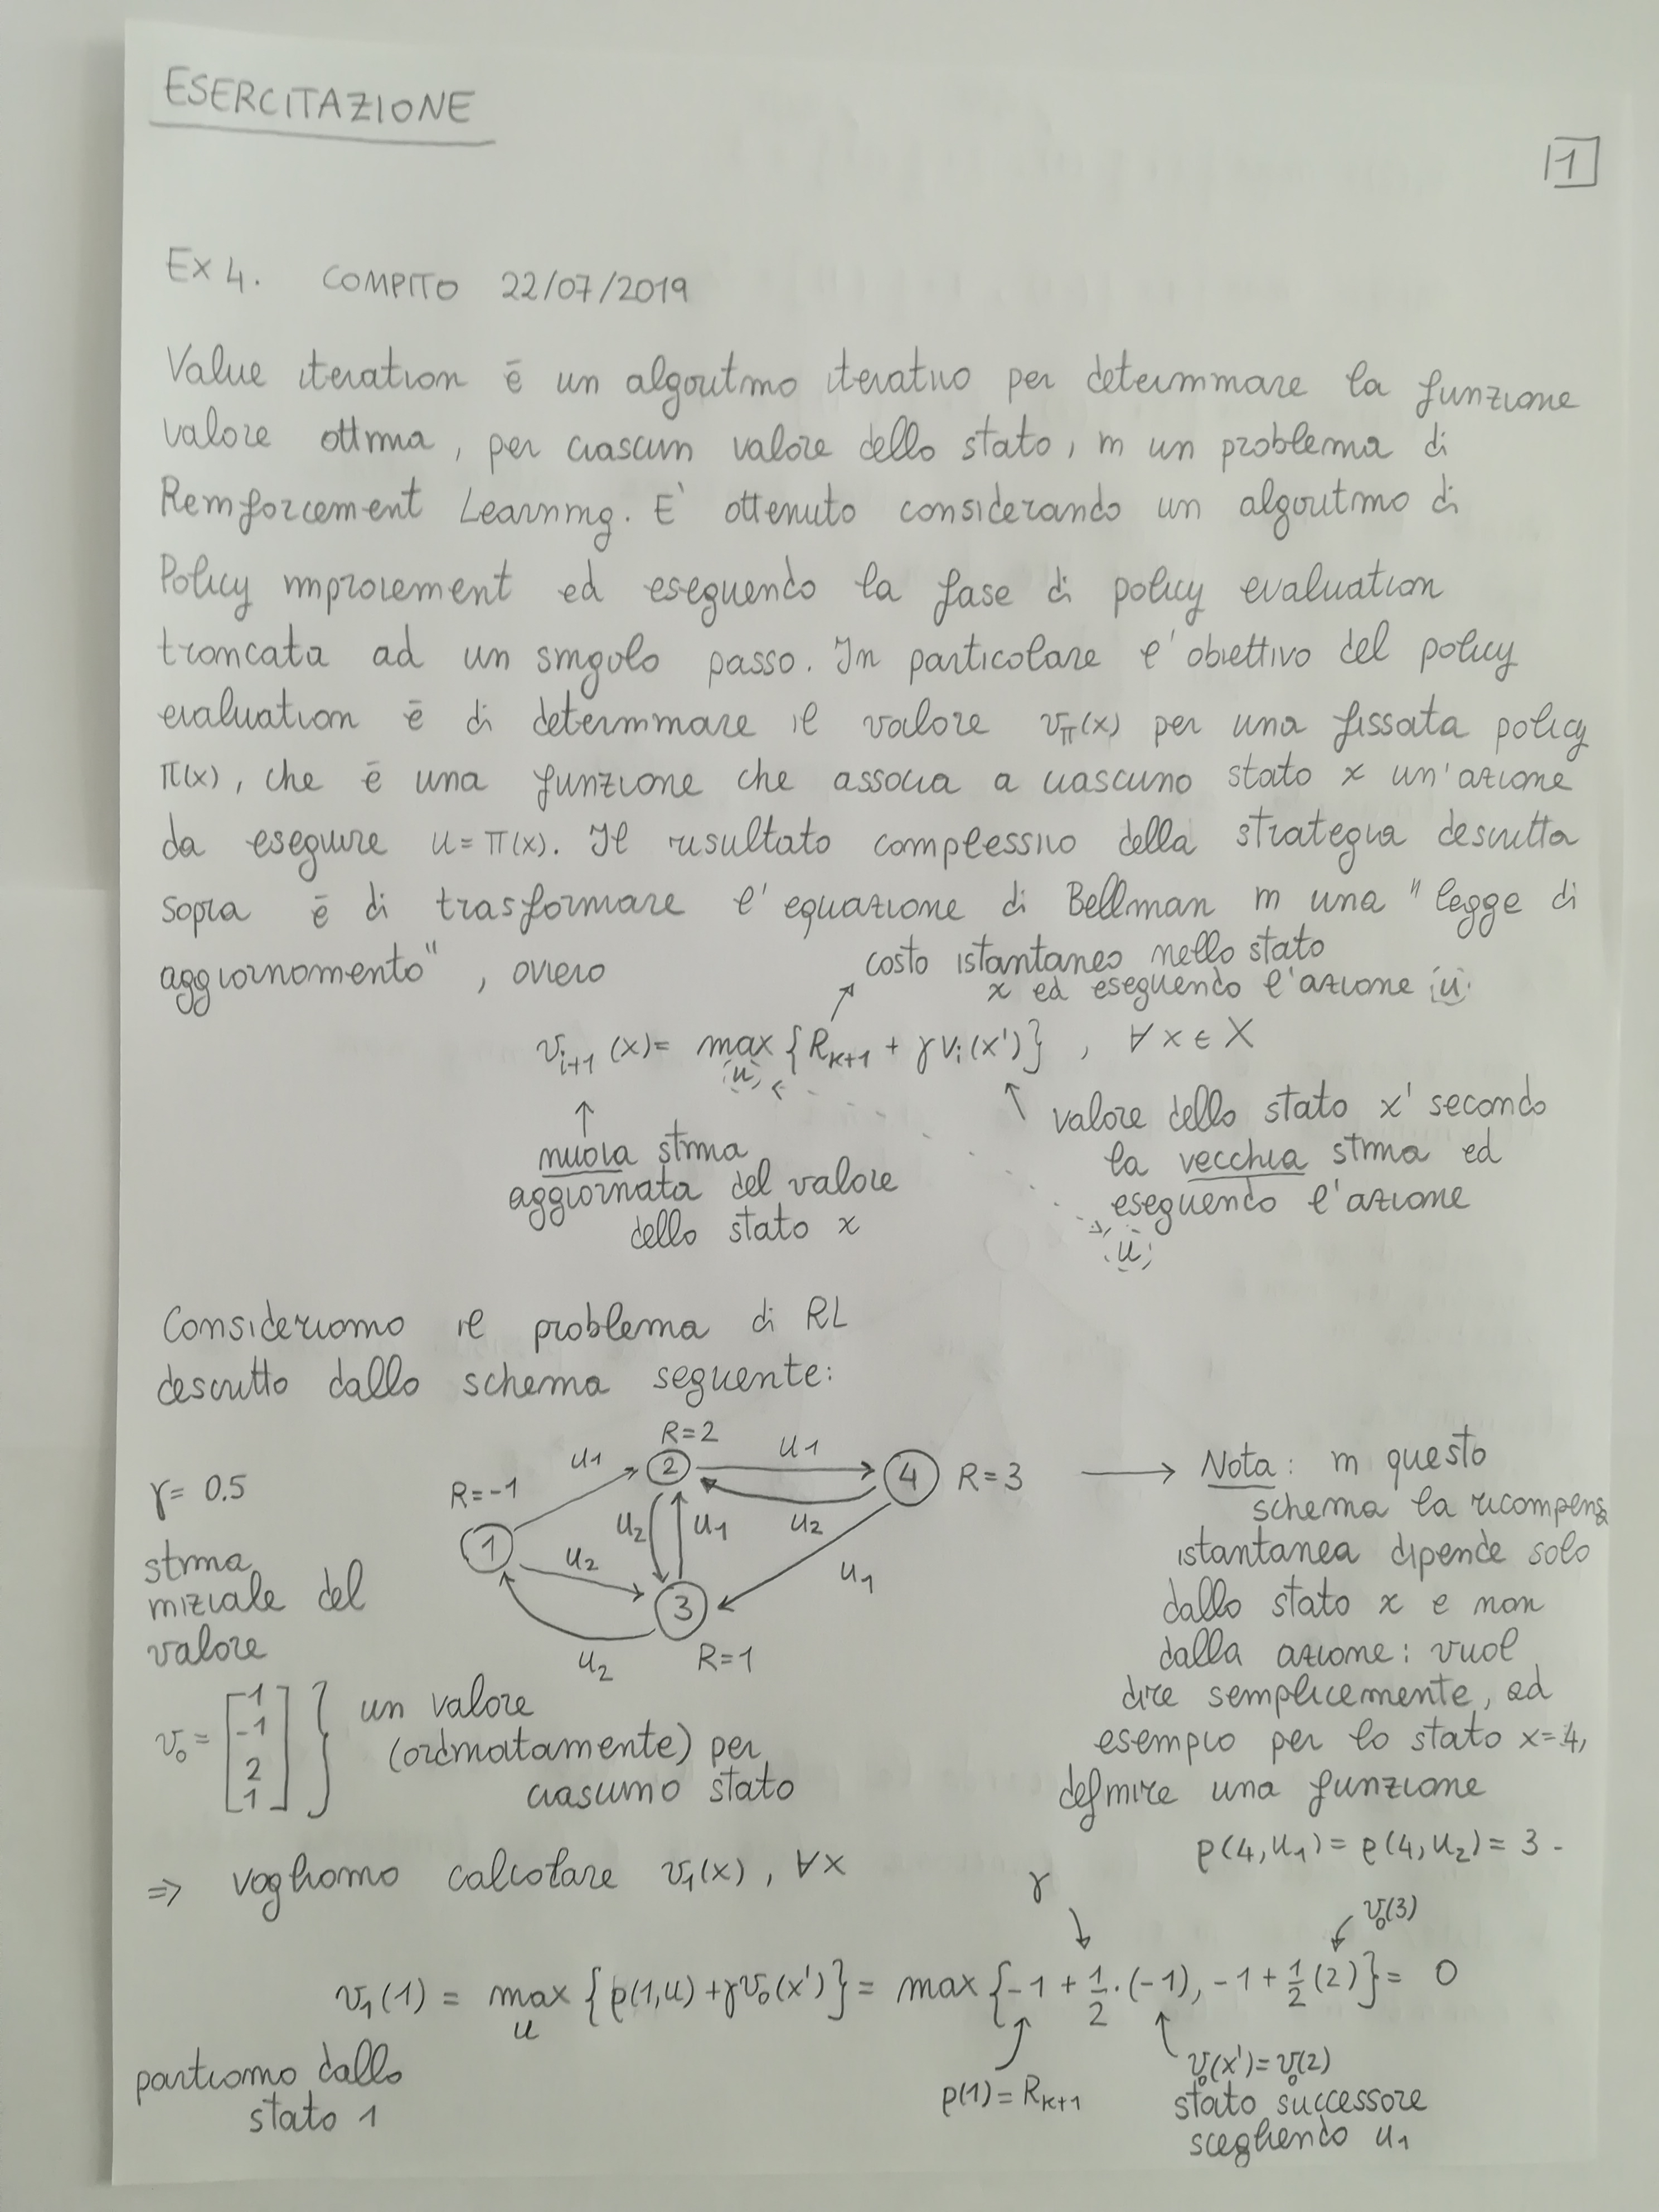 ESERCITAZIONE
1
EX 4. COMPITO 22/07/2019
Value iteration è un algoritmo iterativo per determinare la funzione
valore ottima, per ciascun valore dello stato, in un problema di
Reinforcement Learning. E' ottenuto considerando un algoritmo di
Policy improvement ed eseguendo la fase di policy evaluation
troncata ad un singolo passo. In particolare l'obiettivo del policy
evaluation è di determinare il valore v_π(x) per una fissata policy
π(x), che è una funzione che associa a ciascuno stato x un'azione
da eseguire u = π(x). Il risultato complessivo della strategia descritta
sopra è di trasformare l'equazione di Bellman in una "legge di
aggiornamento", ovvero
costo istantaneo nello stato
x ed eseguendo l'azione u
v_{i+1}(x) = max_u {R_{k+1} + γ v_i(x')}, ∀ x ∈ X
↑ nuova stima
aggiornata del valore
dello stato x
valore dello stato x' secondo
la vecchia stima ed
eseguendo l'azione
u
Consideriamo il problema di RL
descritto dallo schema seguente:
γ = 0.5
stima
iniziale del
valore
v₀ = [1 -1 2 1] } un valore
(ordinatamente) per
ciascuno stato
R=-1
1
u₁
R=2
2
u₁
4
R=3
u₂
u₁
u₂
u₂
u₁
3
R=1
u₂
→ Nota: in questo
schema la ricompensa
istantanea dipende solo
dallo stato x e non
dalla azione: vuol
dire semplicemente, ad
esempio per lo stato x=4,
definire una funzione
ρ(4,u₁) = ρ(4,u₂) = 3.
⇒ vogliamo calcolare v₁(x), ∀x
γ
v₀(3)
v₁(1) = max_u {ρ(1,u) + γv₀(x')} = max {-1 + 1/2·(-1), -1 + 1/2(2)} = 0
partiamo dallo
stato 1
ρ(1) = R_{k+1}
v₀(x') = v₀(2)
stato successore
scegliendo u₁